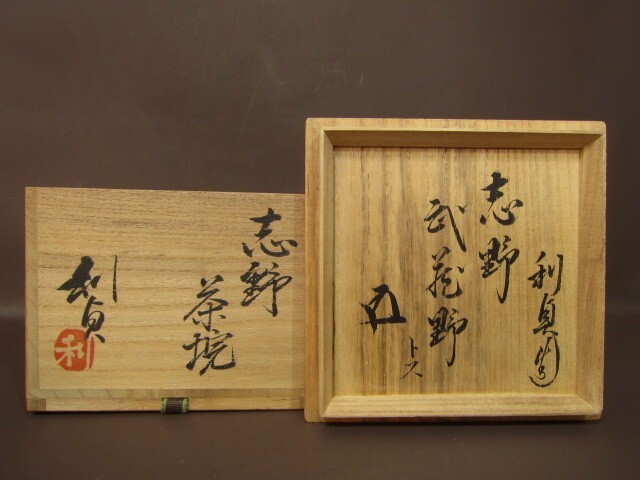 志野
茶埦
利貞
利
利貞造
志野
武蔵野
トス